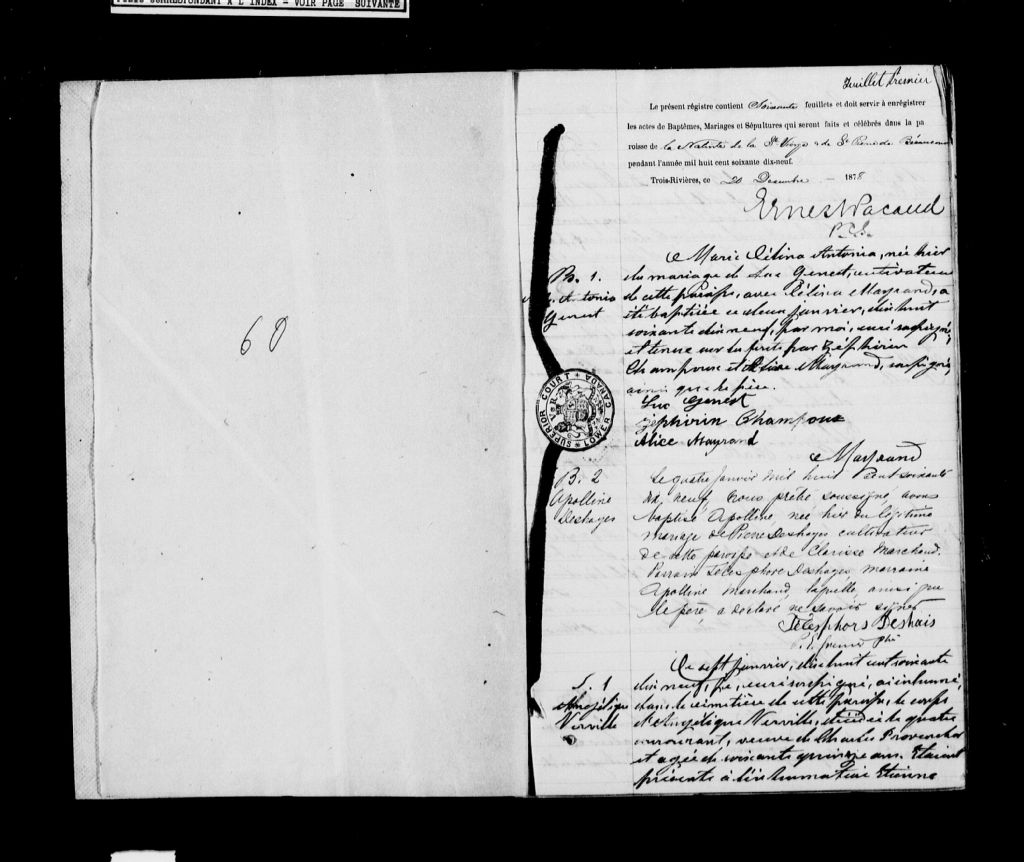 CORRESPONDANT A L'INDEX - VOIR PAGE SUIVANTE
60
Feuillet Premier
Le présent régistre contient Soixante feuillets et doit servir à enrégistrer
les actes de Baptêmes, Mariages et Sépultures qui seront faits et célébrés dans la pa
roisse de la Nativité de la Ste Vierge de
pendant l'année mil huit cent soixante dix-neuf.
Trois-Rivières, ce 20 Decembre - 1878
Ernest Pacaud
SUPERIOR COURT LOWER CANADA
V R
B. 1.
Antonia
Genest
Marie Célina Antonia, née hier
du mariage de Luc Genest, cultivateur
de cette paroisse, avec Célina Mayrand, a
été baptisée ce deux janvier, dix huit
soixante dix neuf, par moi, curé soussigné,
et tenue sur les fonts par Zéphirin
Champoux et Alice Mayrand, soussignés,
ainsi que le père.
Luc Genest
Zephirin Champoux
Alice Mayrand
Mayrand
B. 2
Apolline
Deshayes
Le quatre Janvier mil huit cent soixante
dix neuf, nous prêtre soussigné, avons
baptisé Apolline née hier du légitime
mariage de Pierre Deshayes cultivateur
de cette paroisse et de Clarisse Marchand.
Parrain Télesphore Deshayes marraine
Apolline Marchand, laquelle, ainsi que
le père a déclaré ne savoir signer
Télesphors Deshais
S. 1
Angélique
Verville
Ce sept janvier, dix huit cent soixante
dix neuf, je, curé soussigné, ai inhumé,
dans le cimetière de cette paroisse, le corps
d'Angélique Verville, décédée le quatre
courant, veuve de Charles Provencher
et agée de soixante quinze ans. Etaient
présents à l'inhumation Etienne